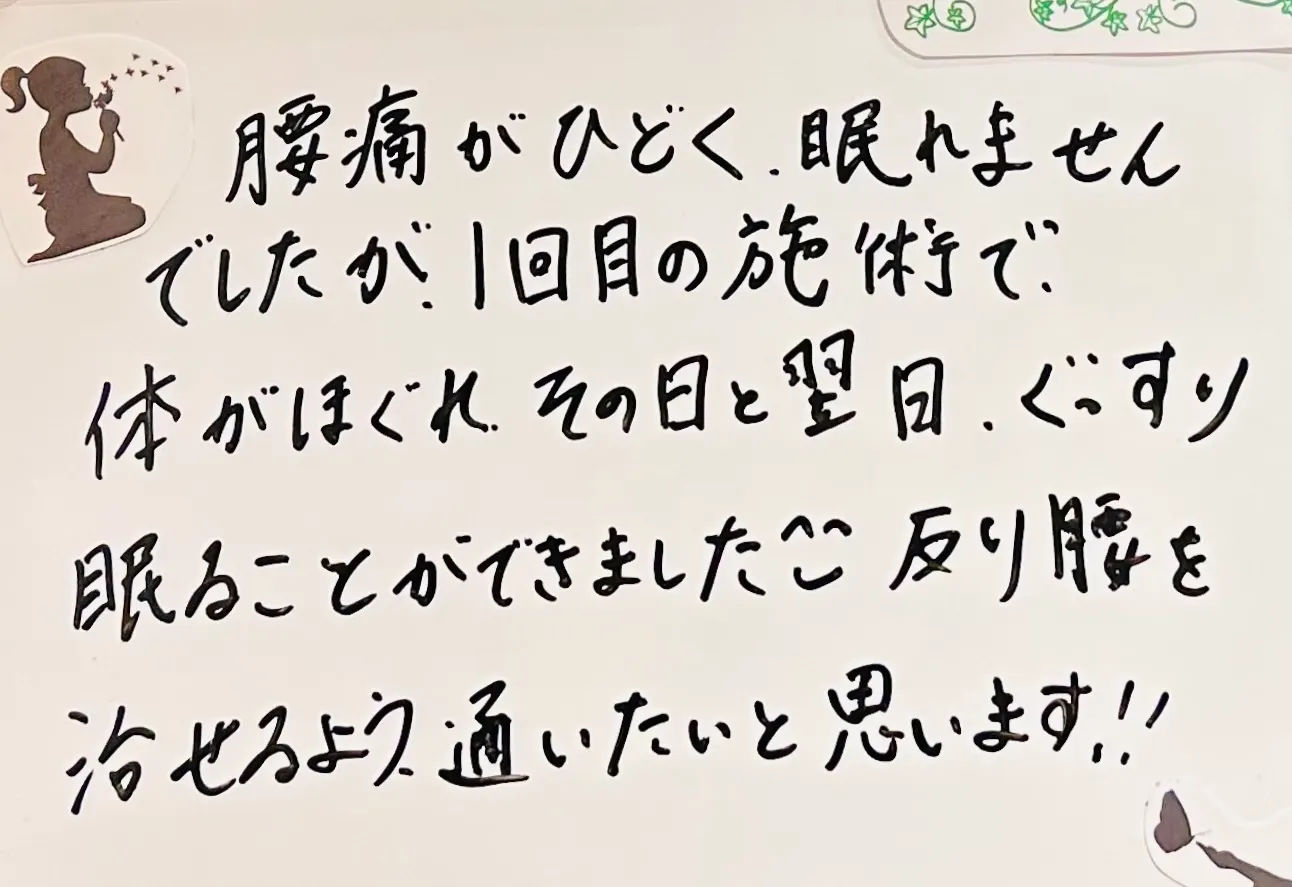 腰痛がひどく、眠れません
でしたが、1回目の施術で、
体がほぐれ、その日と翌日、ぐっすり
眠ることができました^^ 反り腰を
治せるよう、通いたいと思います!!